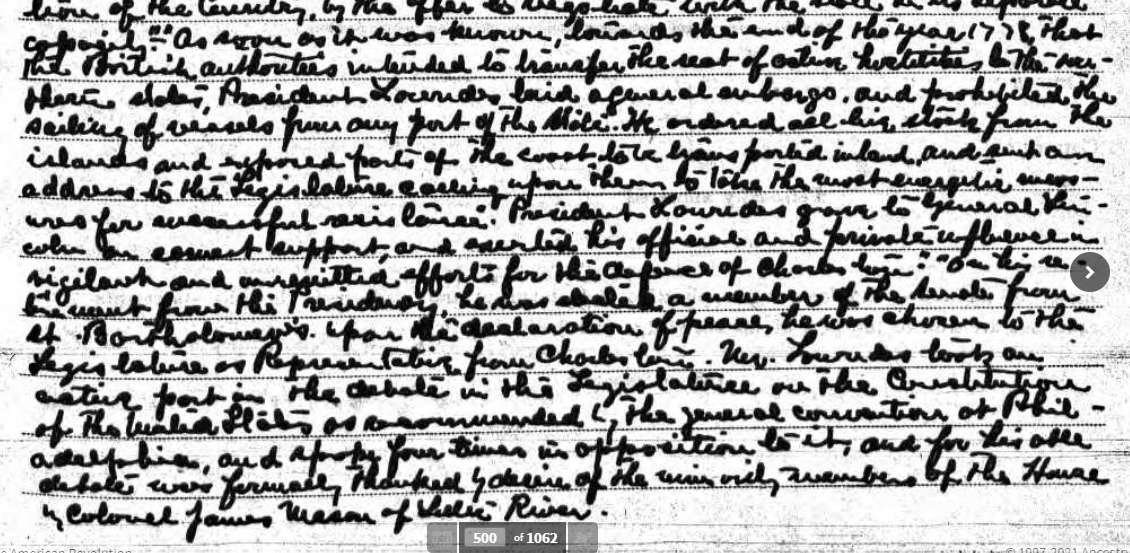 tion of the Country, by the offer to negotiate with the state in its separate
capacity." "As soon as it was known, towards the end of the year 1778, that
the British authorities intended to transfer the seat of active hostilities to the sou-
thern states, President Lowndes laid a general embargo, and prohibited the
sailing of vessels from any port of the State. He ordered all live stock from the
islands and exposed parts of the coast to be transported inland, and sent an
address to the Legislature calling upon them to take the most energetic meas-
ures for successful resistance". President Lowndes gave to General Lin-
coln an earnest support, and exerted his official and private influence in
vigilant and unremitted efforts for the defence of Charles town": "On his re-
tirement from the Presidency, he was elected a member of the Senate from
St. Bartholomew's. Upon the declaration of peace, he was chosen to the
Legislature as Representative from Charles town. Mr. Lowndes took an
active part in the debate in the Legislature on the Constitution
of the United States as recommended by the general convention at Phil-
adelphia, and spoke four times in opposition to it, and for his able
debate was formally thanked by desire of the minority members of the House
by Colonel James Mason of Little River.
500 of 1062
e American Revolution
© 1997-2021 Ancestry